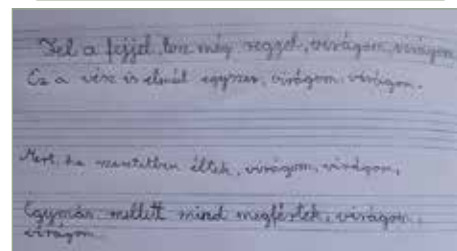 Fel a fejjel, lesz még reggel, virágom, virágom
Ez a vész is elmúl egyszer, virágom, virágom.
Mert ha szeretetben éltek, virágom, virágom,
Egymás mellett mind megfértek, virágom,
virágom.